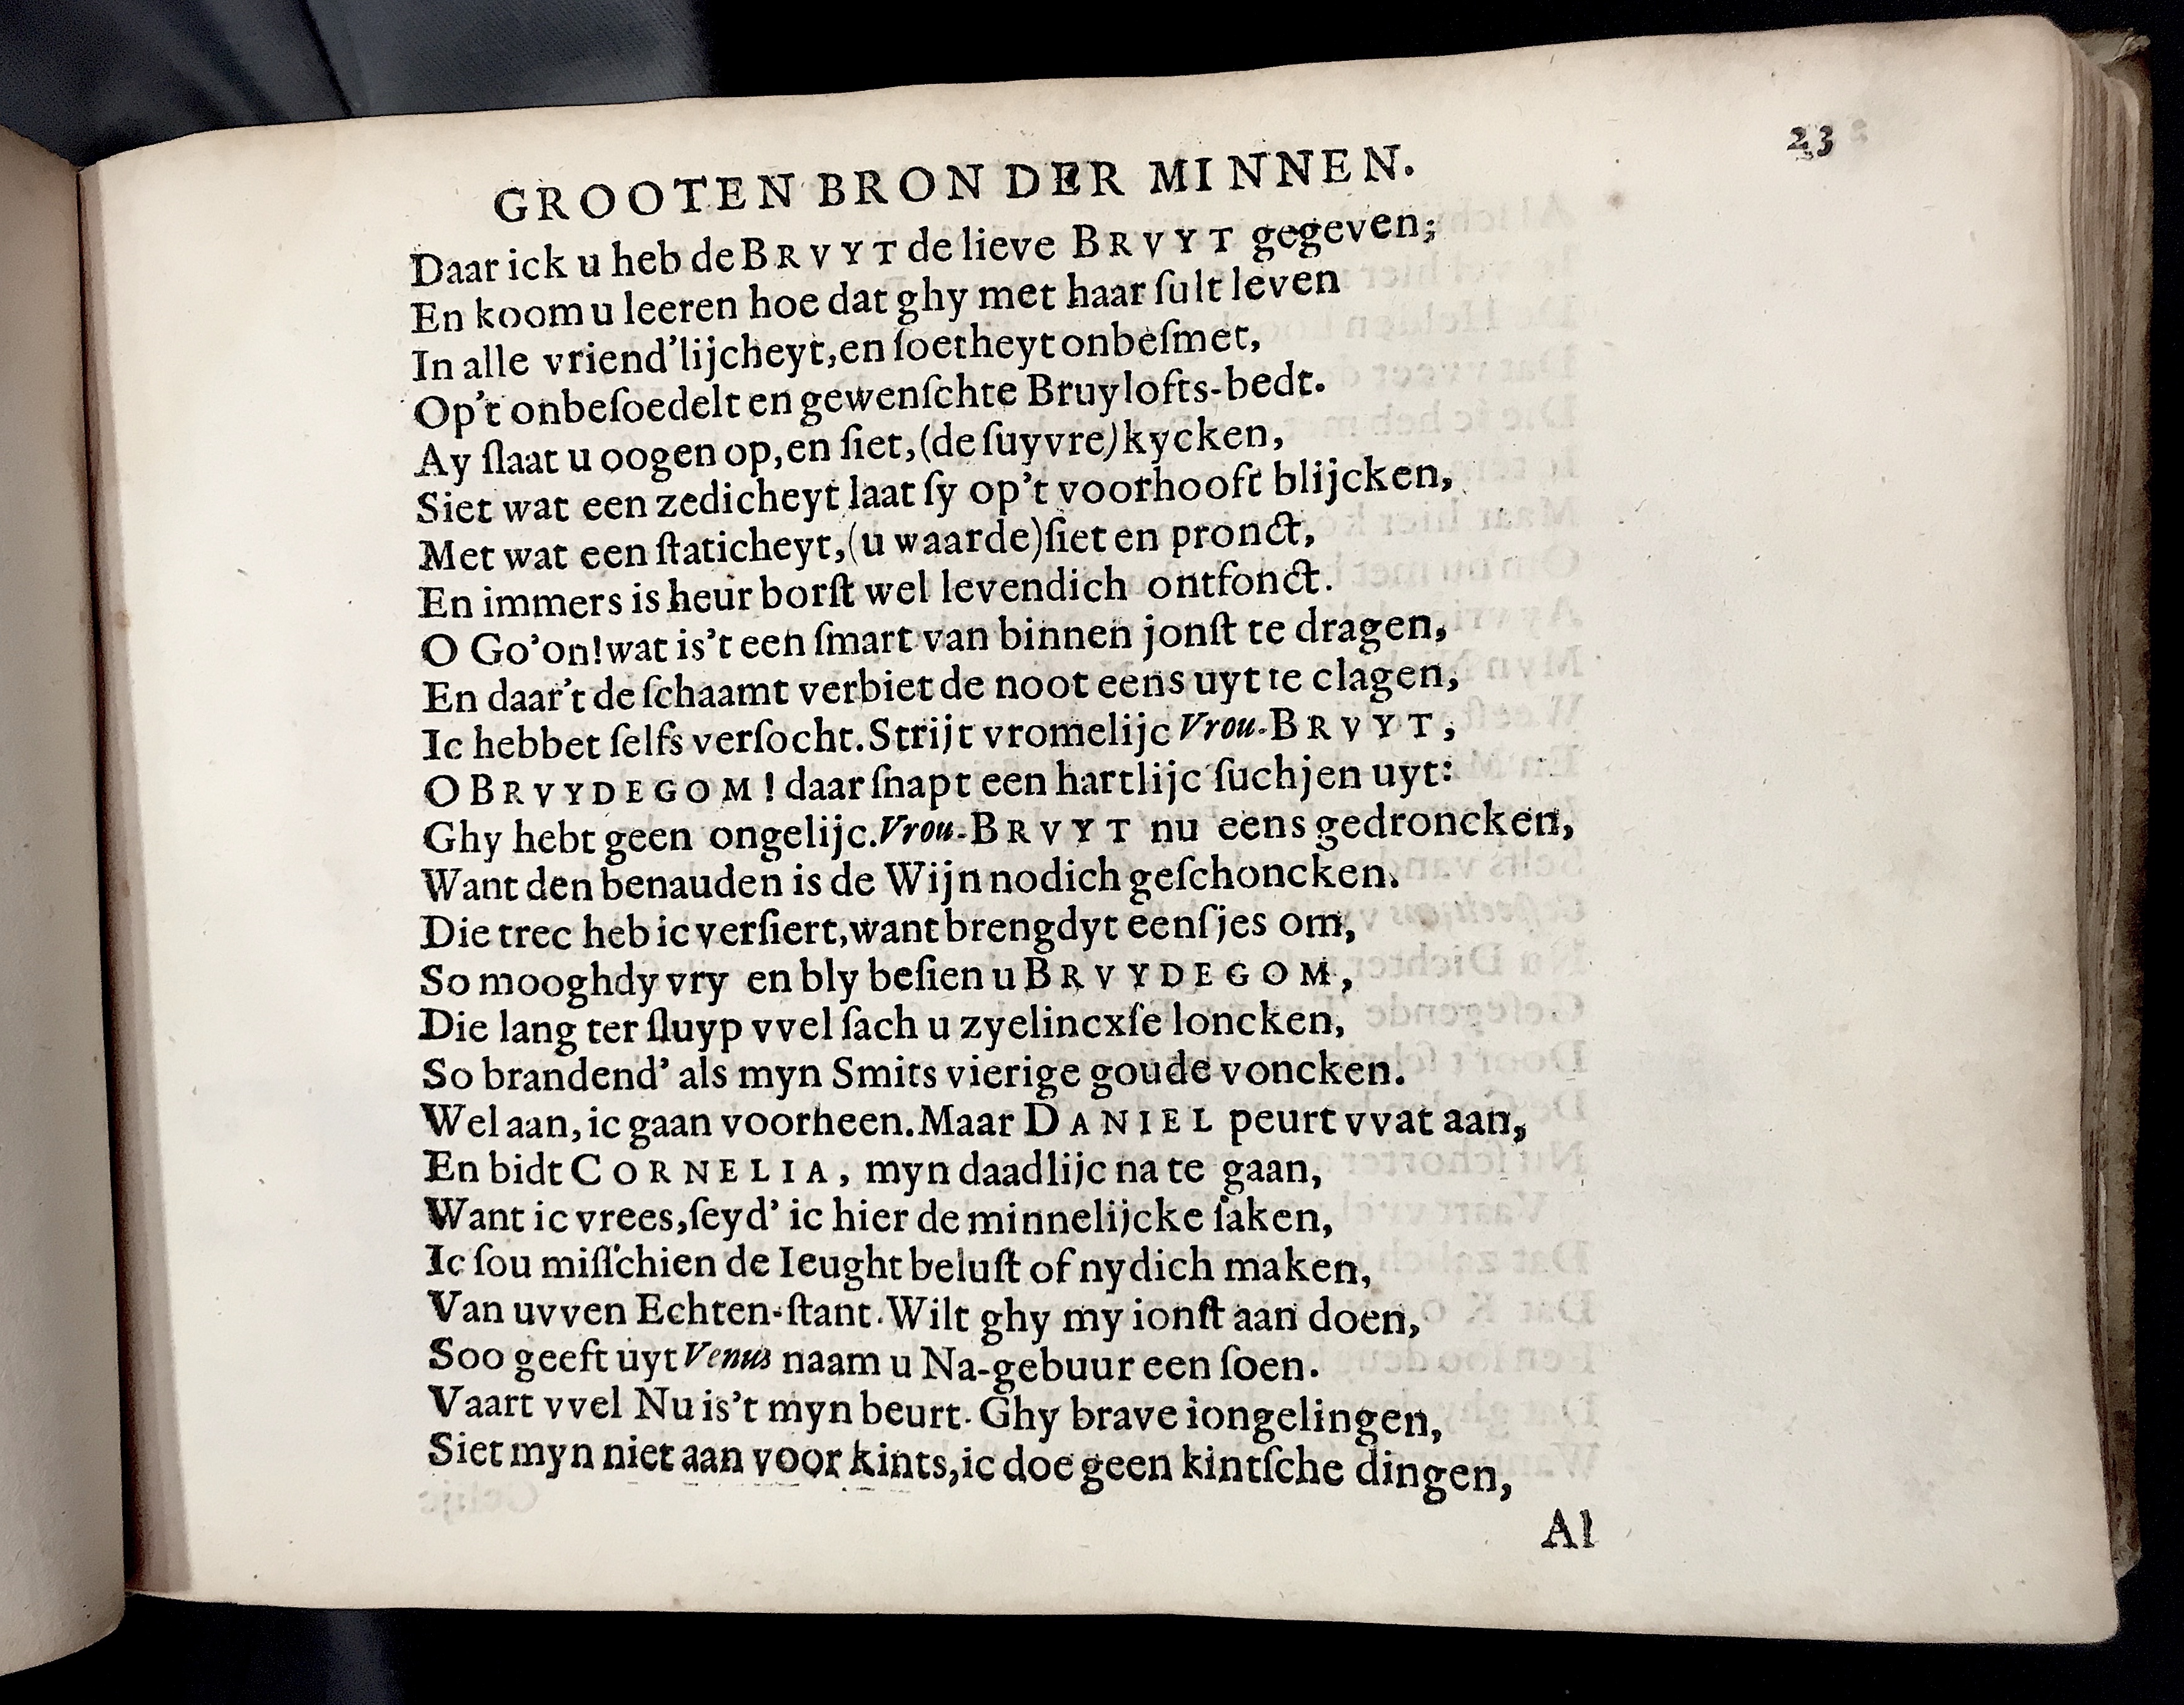 23
GROOTEN BRON DER MINNEN.
Daar ick u heb de BRVYT de lieve BRVYT gegeven;
En koom u leeren hoe dat ghy met haar ſult leven
In alle vriend'lijcheyt, en ſoetheyt onbeſmet,
Op't onbeſoedelt en gewenſchte Bruylofts-bedt.
Ay ſlaat u oogen op, en ſiet, (de ſuyvre) kycken,
Siet wat een zedicheyt laat ſy op't voorhooft blijcken,
Met wat een ſtaticheyt, (u waarde) ſiet en pronct,
En immers is heur borſt wel levendich ontfonct.
O Go'on! wat is't een ſmart van binnen jonſt te dragen,
En daar't de ſchaamt verbiet de noot eens uyt te clagen,
Ic hebbet ſelfs verſocht. Strijt vromelijc Vrou-BRVYT,
O BRVYDEGOM! daar ſnapt een hartlijc ſuchjen uyt:
Ghy hebt geen ongelijc. Vrou-BRVYT nu eens gedroncken,
Want den benauden is de Wijn nodich geſchoncken.
Die trec heb ic verſiert, want brengdyt eenſjes om,
So mooghdy vry en bly beſien u BRVYDEGOM,
Die lang ter ſluyp vvel ſach u zyelincxſe loncken,
So brandend' als myn Smits vierige goude voncken.
Wel aan, ic gaan voorheen. Maar DANIEL peurt vvat aan,
En bidt CORNELIA, myn daadlijc na te gaan,
Want ic vrees, ſeyd' ic hier de minnelijcke ſaken,
Ic ſou miſſchien de Ieught beluſt of nydich maken,
Van uvven Echten-ſtant. Wilt ghy my ionſt aan doen,
Soo geeft uyt Venus naam u Na-gebuur een ſoen.
Vaart vvel Nu is't myn beurt. Ghy brave iongelingen,
Siet myn niet aan voor kints, ic doe geen kintſche dingen,
Al